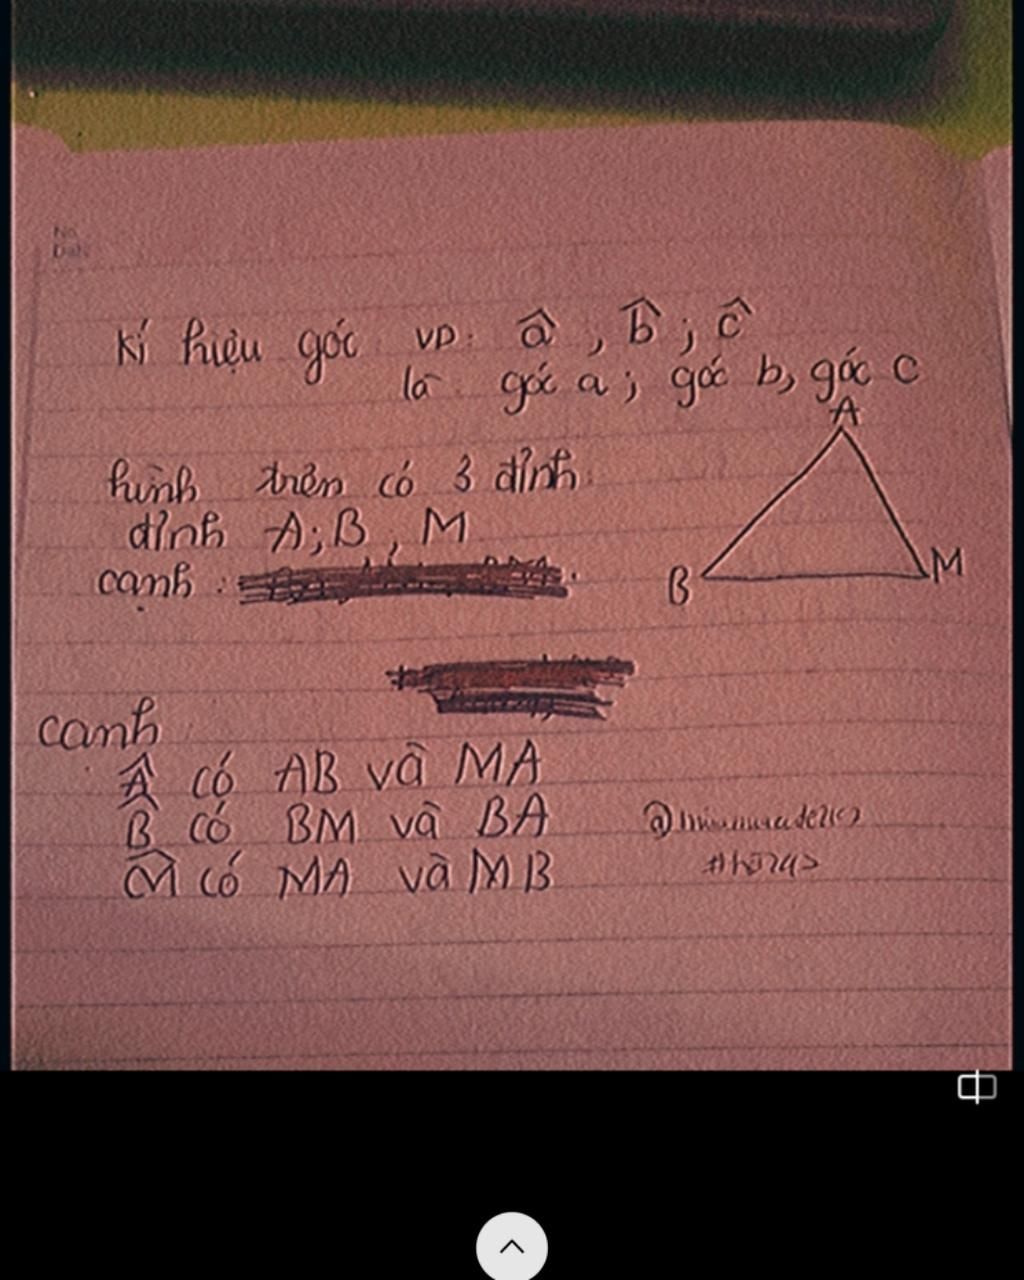 No.
Date
Kí hiệu góc VD: â, b̂; ĉ
là góc a; góc b, góc c
A
hình trên có 3 đỉnh
đỉnh A; B, M
cạnh :
B
M
cạnh
Â có AB và MA
B̂ có BM và BA
M̂ có MA và MB